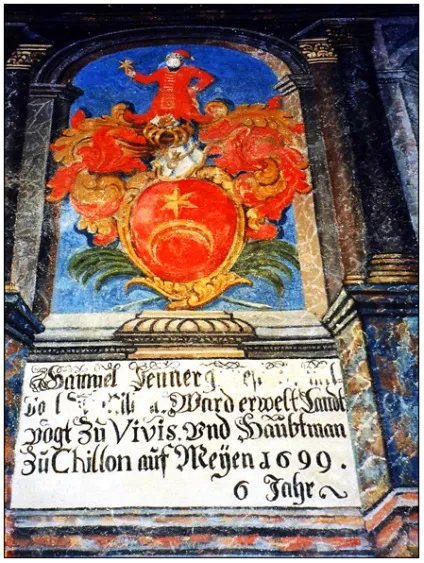 Samuel Jenner
Ward erwelt Landt
vogt Zu Vivis. Vnd Haubtman
Zu Chillon auf Meÿen 1699.
6 Jahr